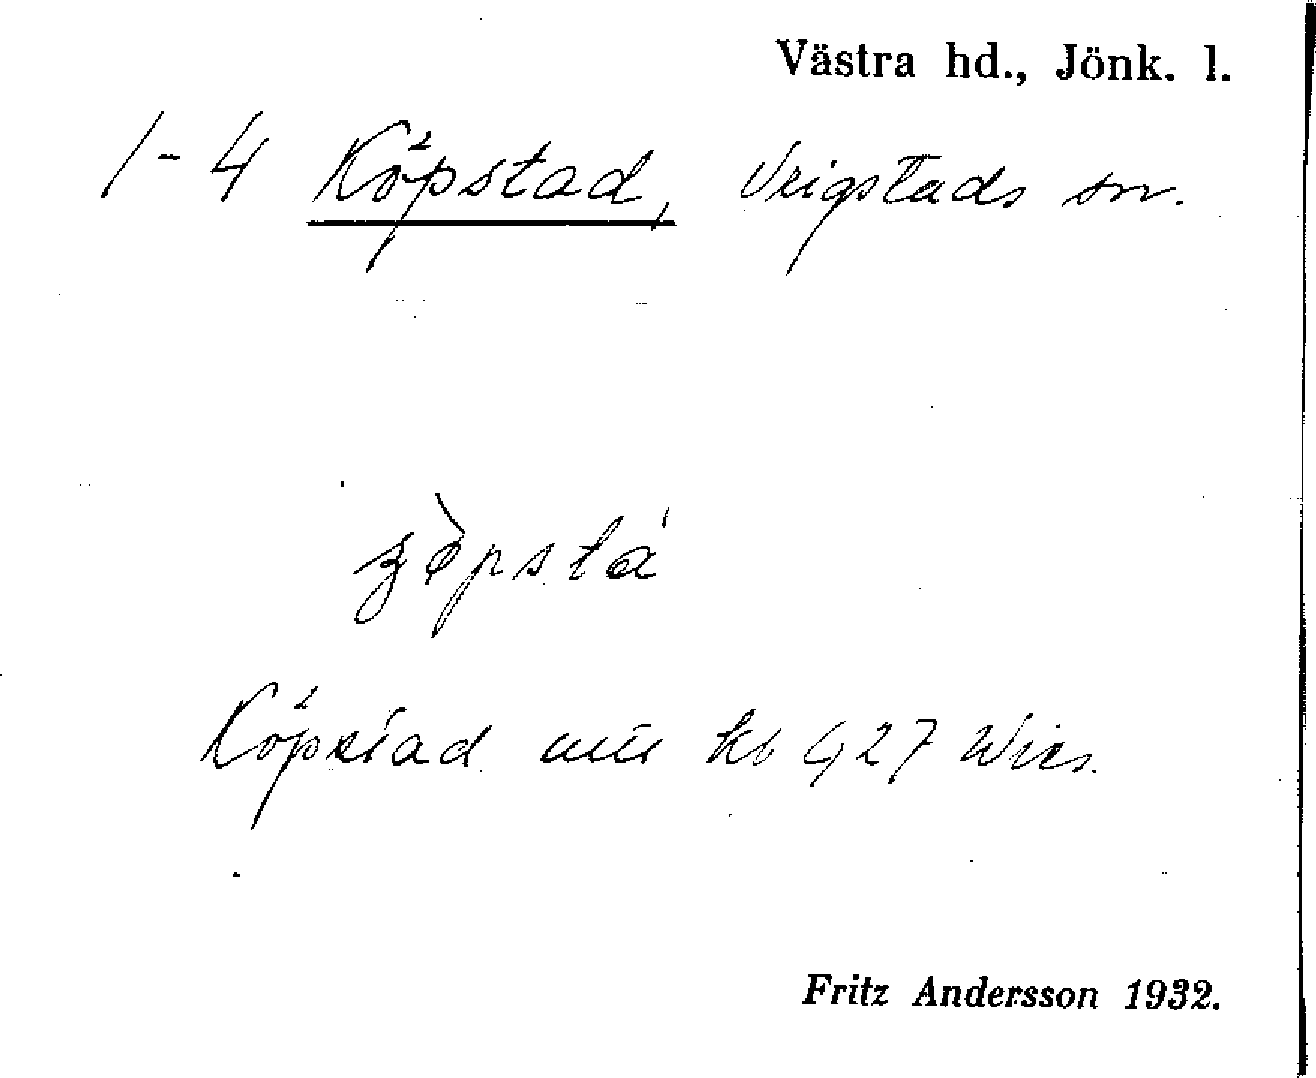 Västra hd., Jönk. l.
1-4 Köpstad, Vrigstads sn.
Köpstad kb 427
Fritz Andersson 1932.